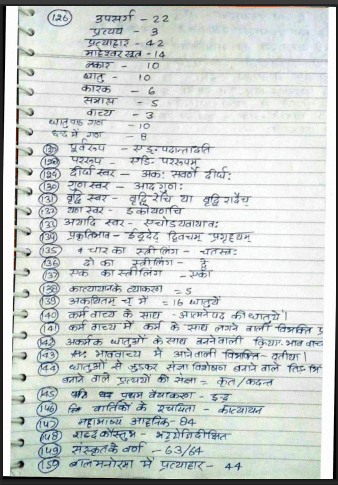 (126) उपसर्ग - 22
प्रत्यय - 3
प्रत्याहार - 42
माहेश्वर सूत्र - 14
लकार - 10
धातु - 10
कारक - 6
समास - 5
वाच्य - 3
धातु गण - 10
छन्द में गण - 8
पूर्वरूप - एङः पदान्तादति
(128) पररूप - एङि पररूपम्
(129) दीर्घ स्वर - अकः सवर्णे दीर्घः
(130) गुण स्वर - आद् गुणः
(131) वृद्धि स्वर - वृद्धिरेचि या वृद्धिरादैच्
(132) यण स्वर - इकोयणचि
(133) अयादि स्वर - एचोऽयवायावः
(134) प्रकृतिभाव - ईदूदेद् द्विवचनम् प्रगृह्यम्
(135) चार का स्त्रीलिंग - चतस्रः
(136) दो का स्त्रीलिंग - द्वे
(137) एक का स्त्रीलिंग - एका
(138) कात्यायन के व्याकरण = 5
(139) अकथितम् च में = 16 धातुयें
(140) कर्म वाच्य के साथ - आत्मनेपद की धातुयें।
(141) कर्म वाच्य में कर्म के साथ लगने वाली विभक्ति प्र
(142) अकर्मक धातुओं के साथ बनने वाली क्रिया - भाव वाच्य
(143) भाववाच्य में आने वाली विभक्ति - तृतीया।
(144) धातुओं से जुड़कर संज्ञा विशेषण बनाने वाले
बनाने वाले प्रत्ययों की संज्ञा = कृत/कदन्त
(145) प्रथम वैयाकरण - इन्द्र
(146) वार्तिकों के रचयिता - कात्यायन
(147) महाभाष्य आह्निक - 84
(148) शब्द कौस्तुभ - भट्टोजिदीक्षित
(149) संस्कृत के वर्ण - 63/64
(150) बालमनोरमा में प्रत्याहार - 44